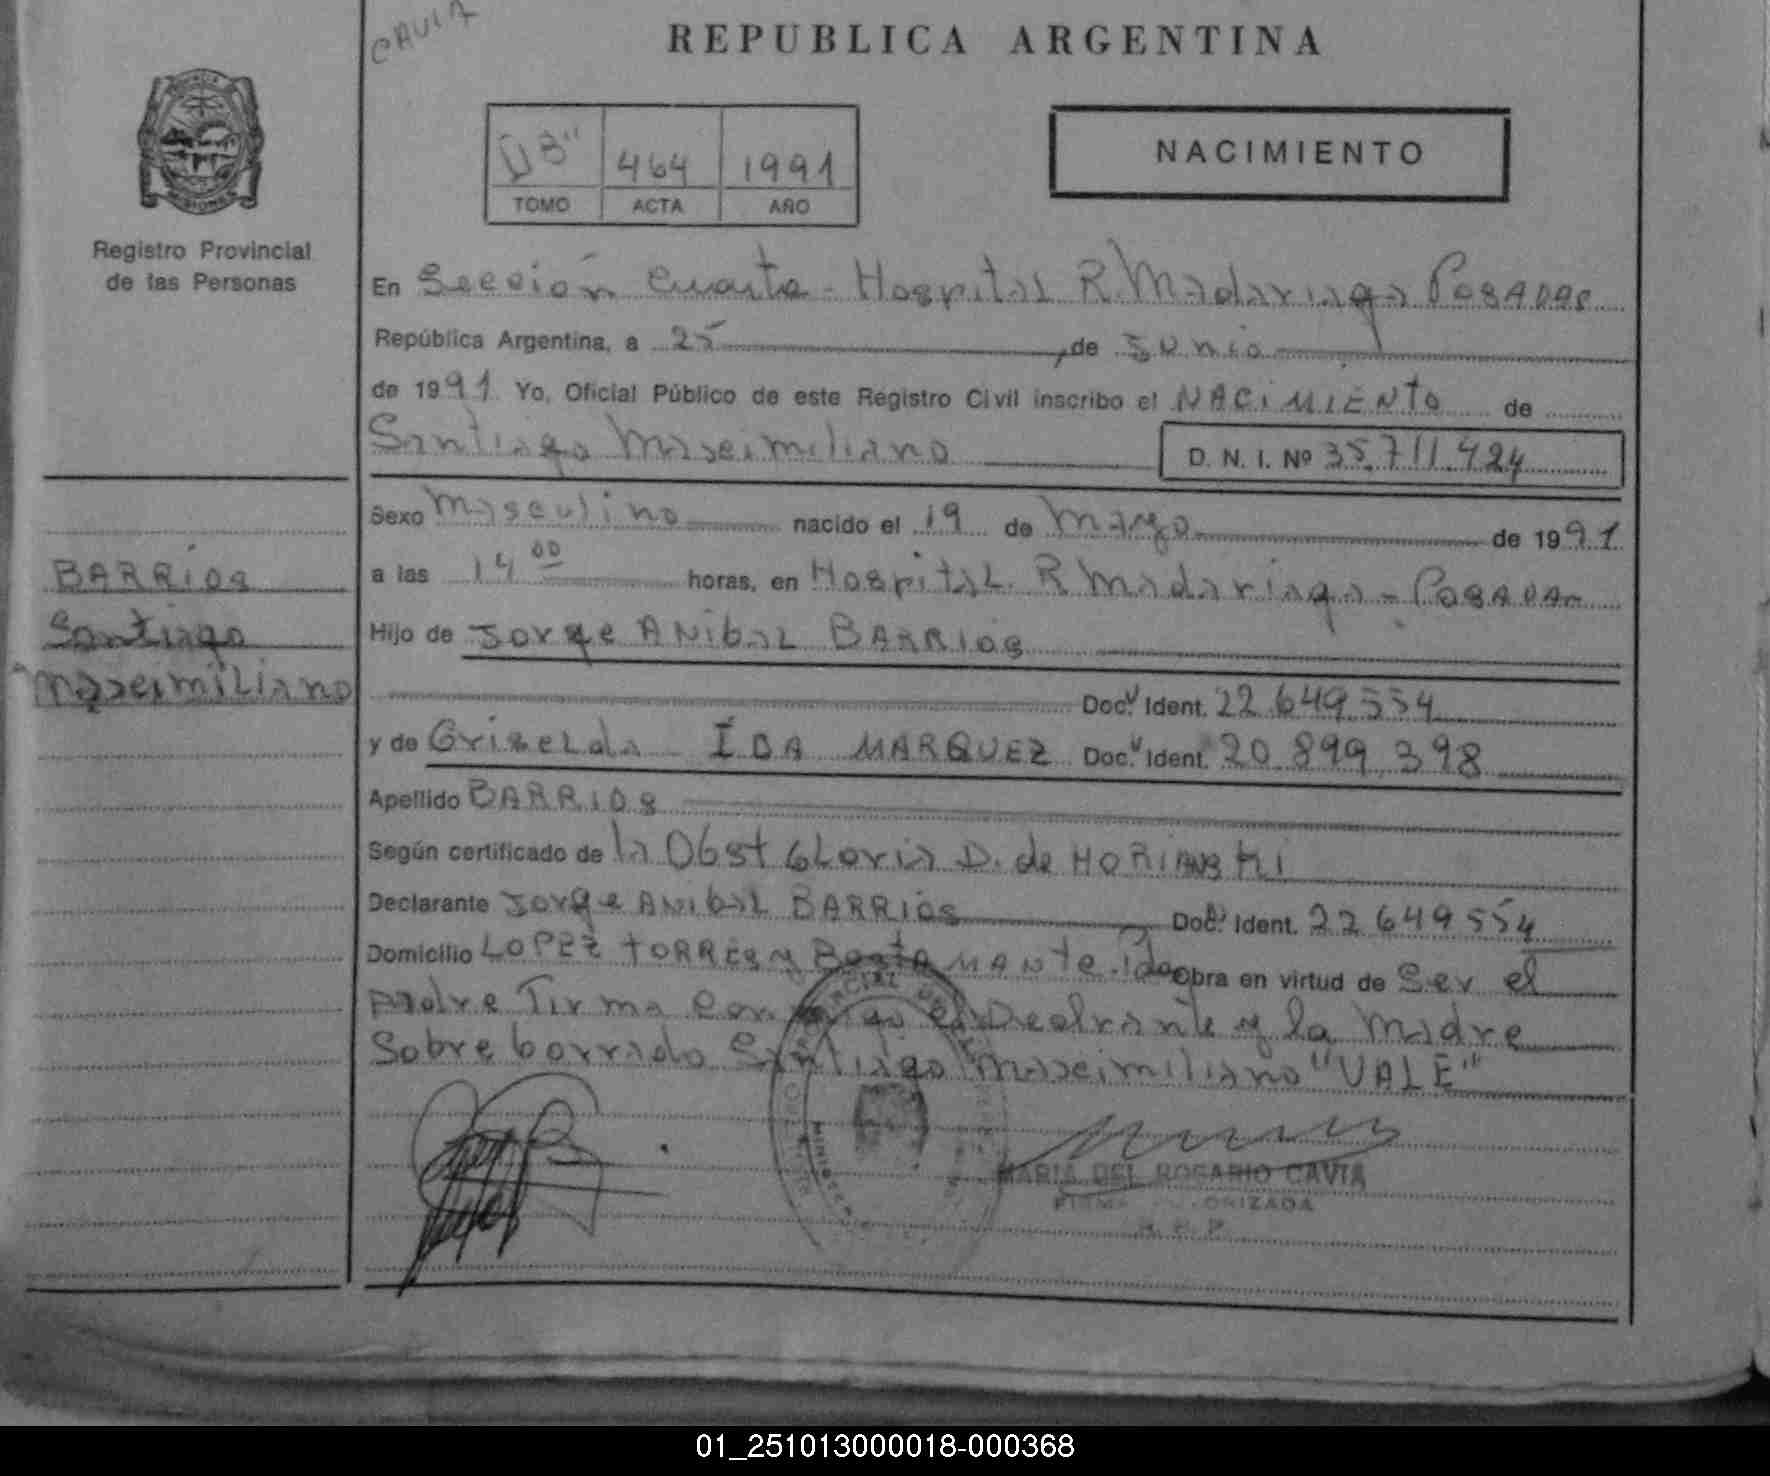 CAVIA
REPUBLICA ARGENTINA
"B" 464 1991
TOMO ACTA AÑO
NACIMIENTO
Registro Provincial
de las Personas
En Sección Cuarta - Hospital R. Madariaga Posadas
República Argentina, a 25 de Junio
de 1991 Yo, Oficial Público de este Registro Civil inscribo el NACIMIENTO de
Santiago Maximiliano D. N. I. Nº 35.711.424
Sexo Masculino nacido el 19 de Mayo de 1991
a las 14 00 horas, en Hospital. R Madariaga - Posadas
Hijo de Jorge ANibal BARRIOS
Doc. Ident. 22.649.554
y de Griselda IDA MARQUEZ Doc. Ident. 20.899.398
Apellido BARRIOS
Según certificado de la Obst Gloria D. de HORIANSKI
Declarante Jorge ANibal BARRIOS Doc. Ident. 22.649.554
Domicilio LOPEZ TORRES y Obra en virtud de Ser el
padre Firma Conmigo el Declrante y la Madre
Sobre borrado Santiago Maximiliano "VALE"
BARRIOS
Santiago
Maximiliano
MARIA DEL ROSARIO CAVIA
01_251013000018-000368